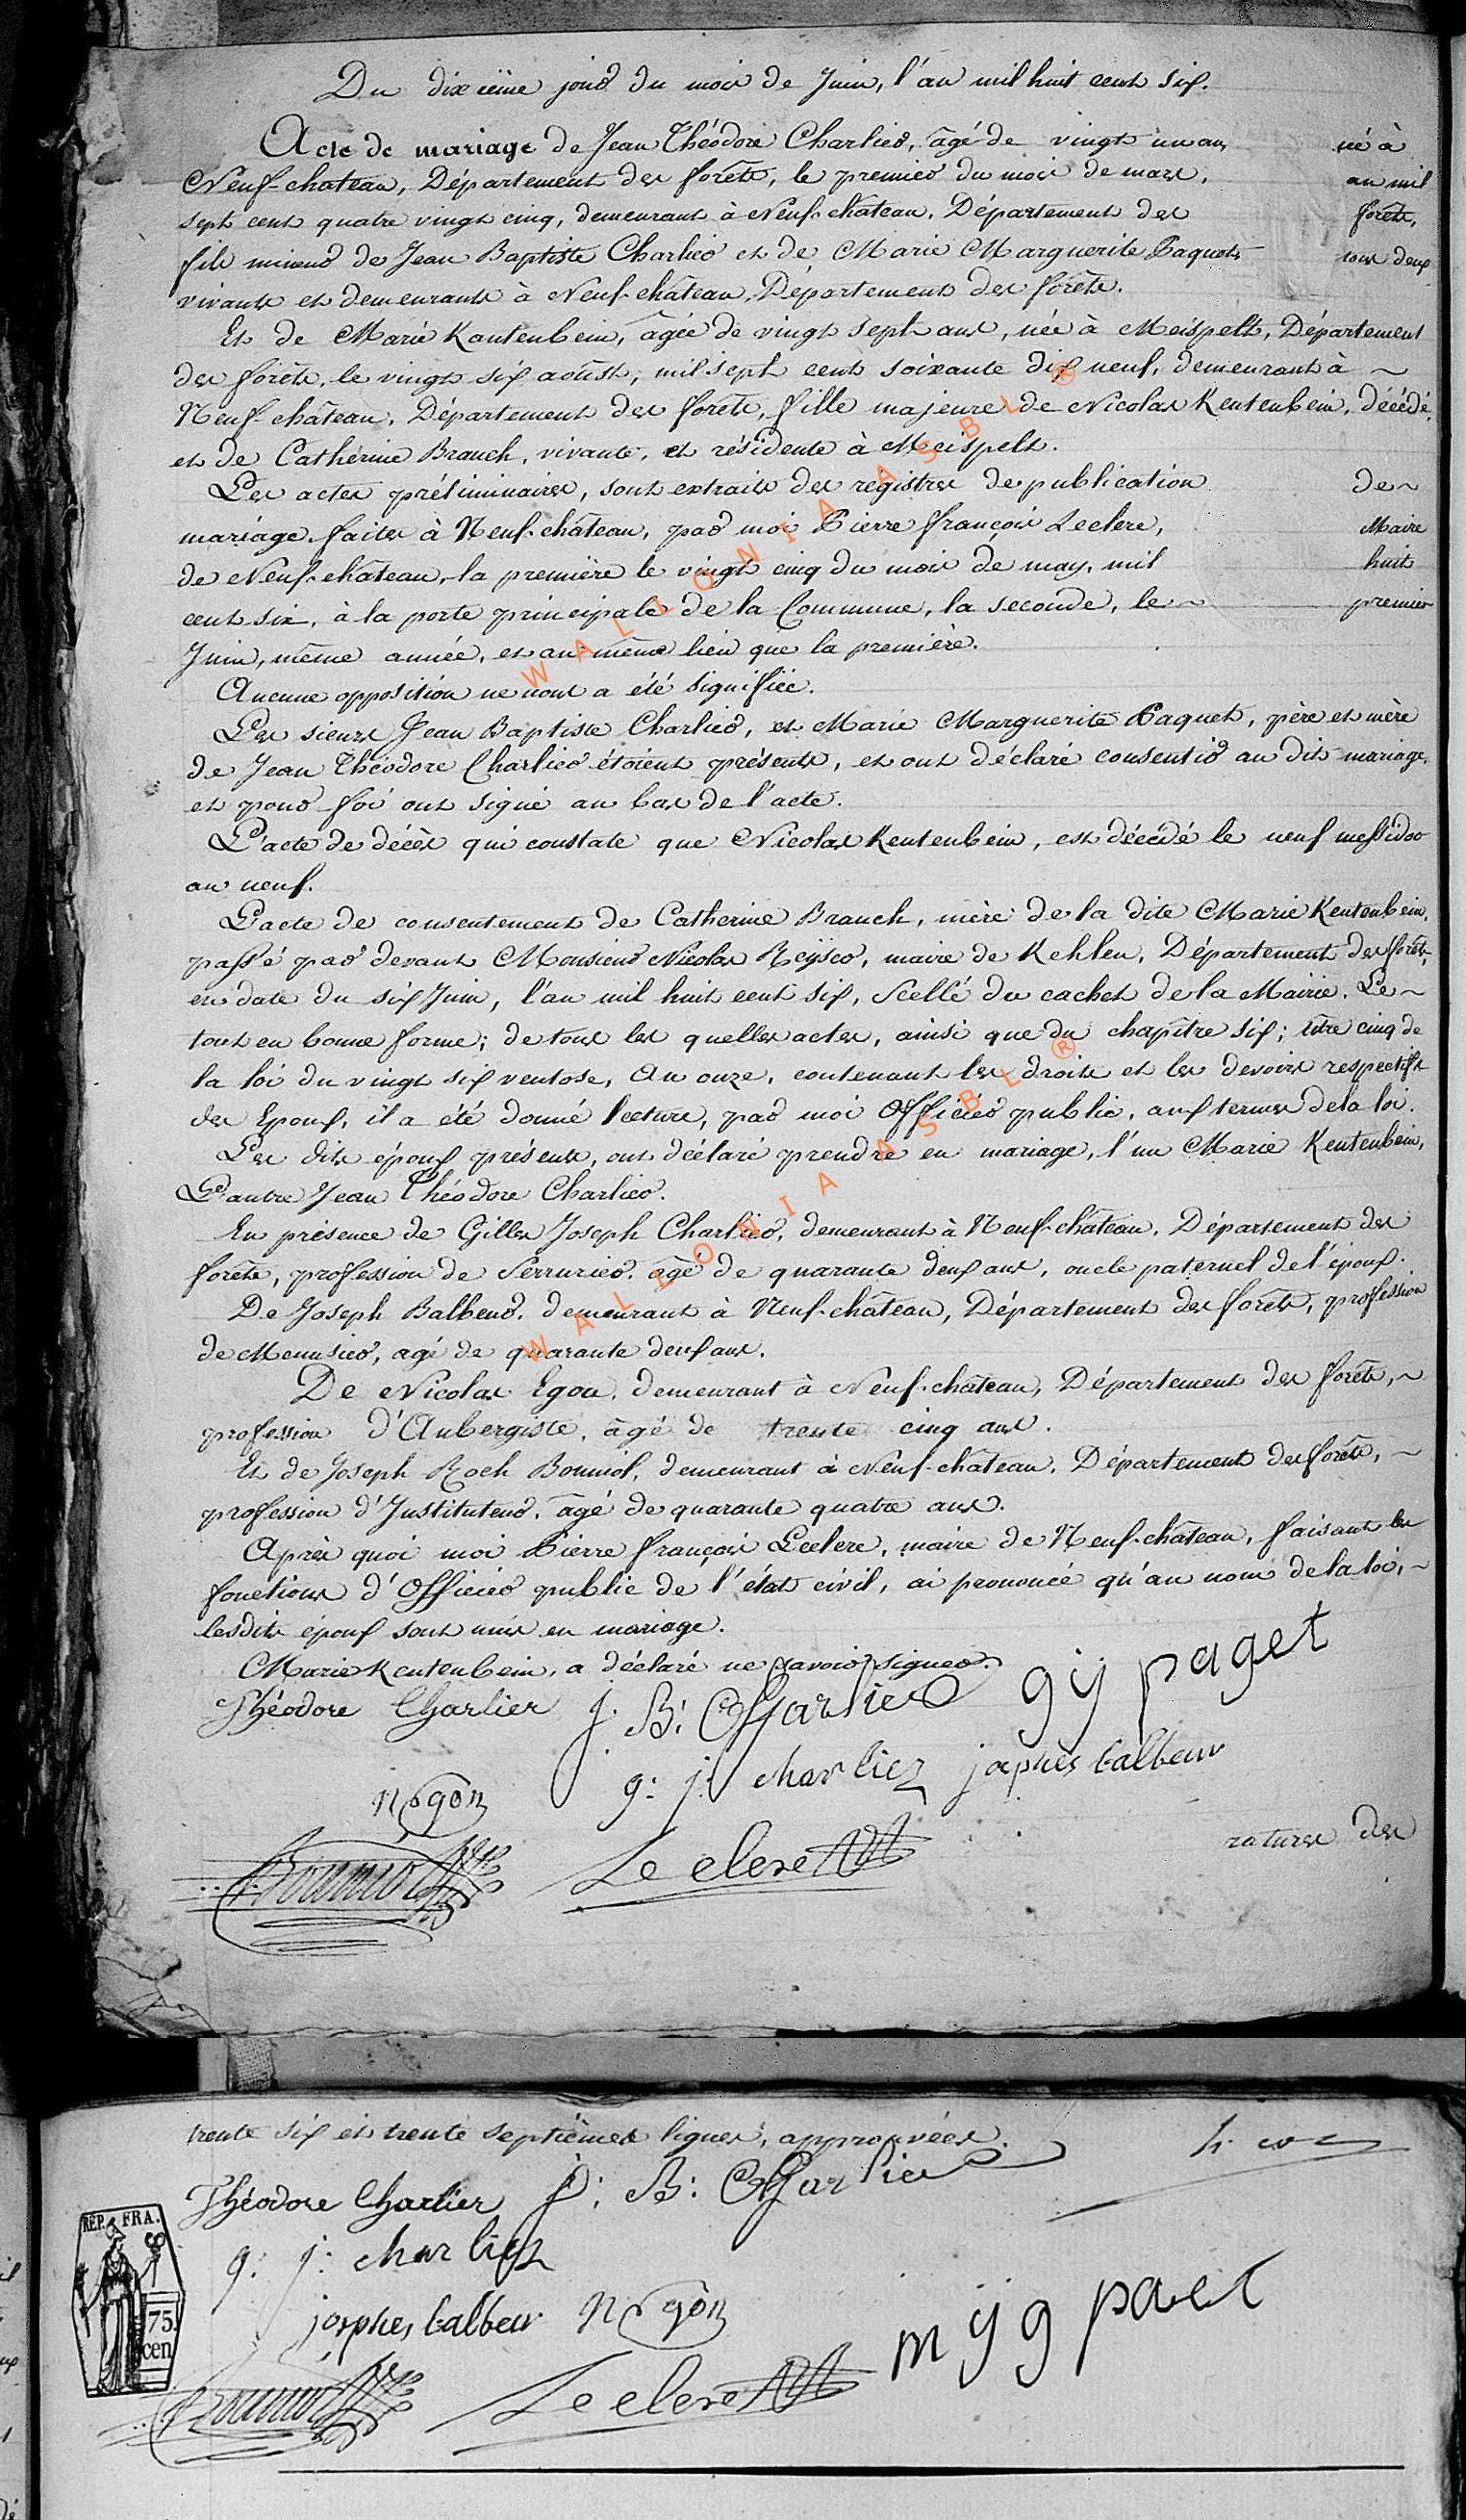 Du dixieme jour du mois de Juin, l'an mil huit cent six.
Acte de mariage de Jean Théodore Charlier, âgé de vingt un ans, né à
Neuf-chateau, Département des forêts, le premier du mois de mars, an mil
sept cent quatre vingt cinq, demeurant à Neuf-château, Département des forêts,
fils mineur de Jean Baptiste Charlier et de Marie Marguerite Paquet, tous deux
vivants et demeurants à Neuf-château, Département des forêts.
Et de Marie Kantenbein, âgée de vingt sept ans, née à Meispelt, Département
des forêts, le vingt six aoûst, mil sept cent soixante dix neuf, demeurant à ~
Neuf-château, Département des forêts, fille majeure de Nicolas Kentenbein, décédé,
et de Catherine Brauch, vivante, et résidente à Meispelt.
Les actes préliminaires, sont extraits des registres de publication de ~
mariage faites à Neuf-château, par moi Pierre françois Leclere, Maire
de Neuf-château, la première le vingt cinq du mois de may, mil huit
cent six, à la porte principale de la Commune, la seconde, le ~ premier
Juin, même année, et au même lieu que la première.
Aucune opposition ne nous a été signifiée.
Les sieurs Jean Baptiste Charlier, et Marie Marguerite Paquet, père et mère
de Jean Théodore Charlier étoient présents, et ont déclaré consentir au dit mariage,
et pour foi ont signé au bas de l'acte.
L'acte de décès qui constate que Nicolas Kentenbein, est décédé le neuf messidor
an neuf.
L'acte de consentement de Catherine Brauch, mère de la dite Marie Kentenbein,
passé par devant Monsieur Nicolas Reyser, maire de Kehlen, Département des forêts,
en date du six Juin, l'an mil huit cent six, Scellé du cachet de la Mairie. Le ~
tout en bonne forme; de tous les quelles actes, ainsi que du chapitre six; titre cinq de
la loi du vingt six ventose, An onze, contenant les droits et les devoirs respectifs
des Epoux, il a été donné lecture, par moi Officier public, aux termes de la loi.
Les dits époux présents, ont déclaré prendre en mariage, l'un Marie Kentenbein,
L'autre Jean Théodore Charlier.
En présence de Gilles Joseph Charlier, demeurant à Neuf-château, Département des
forêts, profession de Serrurier, âgé de quarante deux ans, oncle paternel de l'époux.
De Joseph Balbeur, demeurant à Neuf-château, Département des forêts, profession
de Menusier, agé de quarante deux ans.
De Nicolas Egon, demeurant à Neuf-château, Département des forêts, ~
profession d'Aubergiste, âgé de trente cinq ans.
Et de Joseph Roch Bouniol, demeurant à Neuf-château, Département des forêts, ~
profession d'Instituteur, âgé de quarante quatre ans.
Après quoi moi Pierre françois Leclere, maire de Neuf-château, faisant les
fonctions d'Officier public de l'état civil, ai prononcé qu'au nom de la loi, ~
lesdits époux sont unis en mariage.
Marie Kentenbein, a déclaré ne savoir signer.
Théodore Charlier j. B: Charlier gy paget
g: j: charlier josphes balbeur
n egon
Bouniol Leclere
ratures des
trente six et trente septièmes lignes, approuvées.
Théodore Charlier J: B: Charlier
g: j: charlier
josphes balbeur n egon m y g paet
Bouniol Leclere
REP. FRA.
75
cen
WALLONIA ASBL ®
WALLONIA ASBL ®